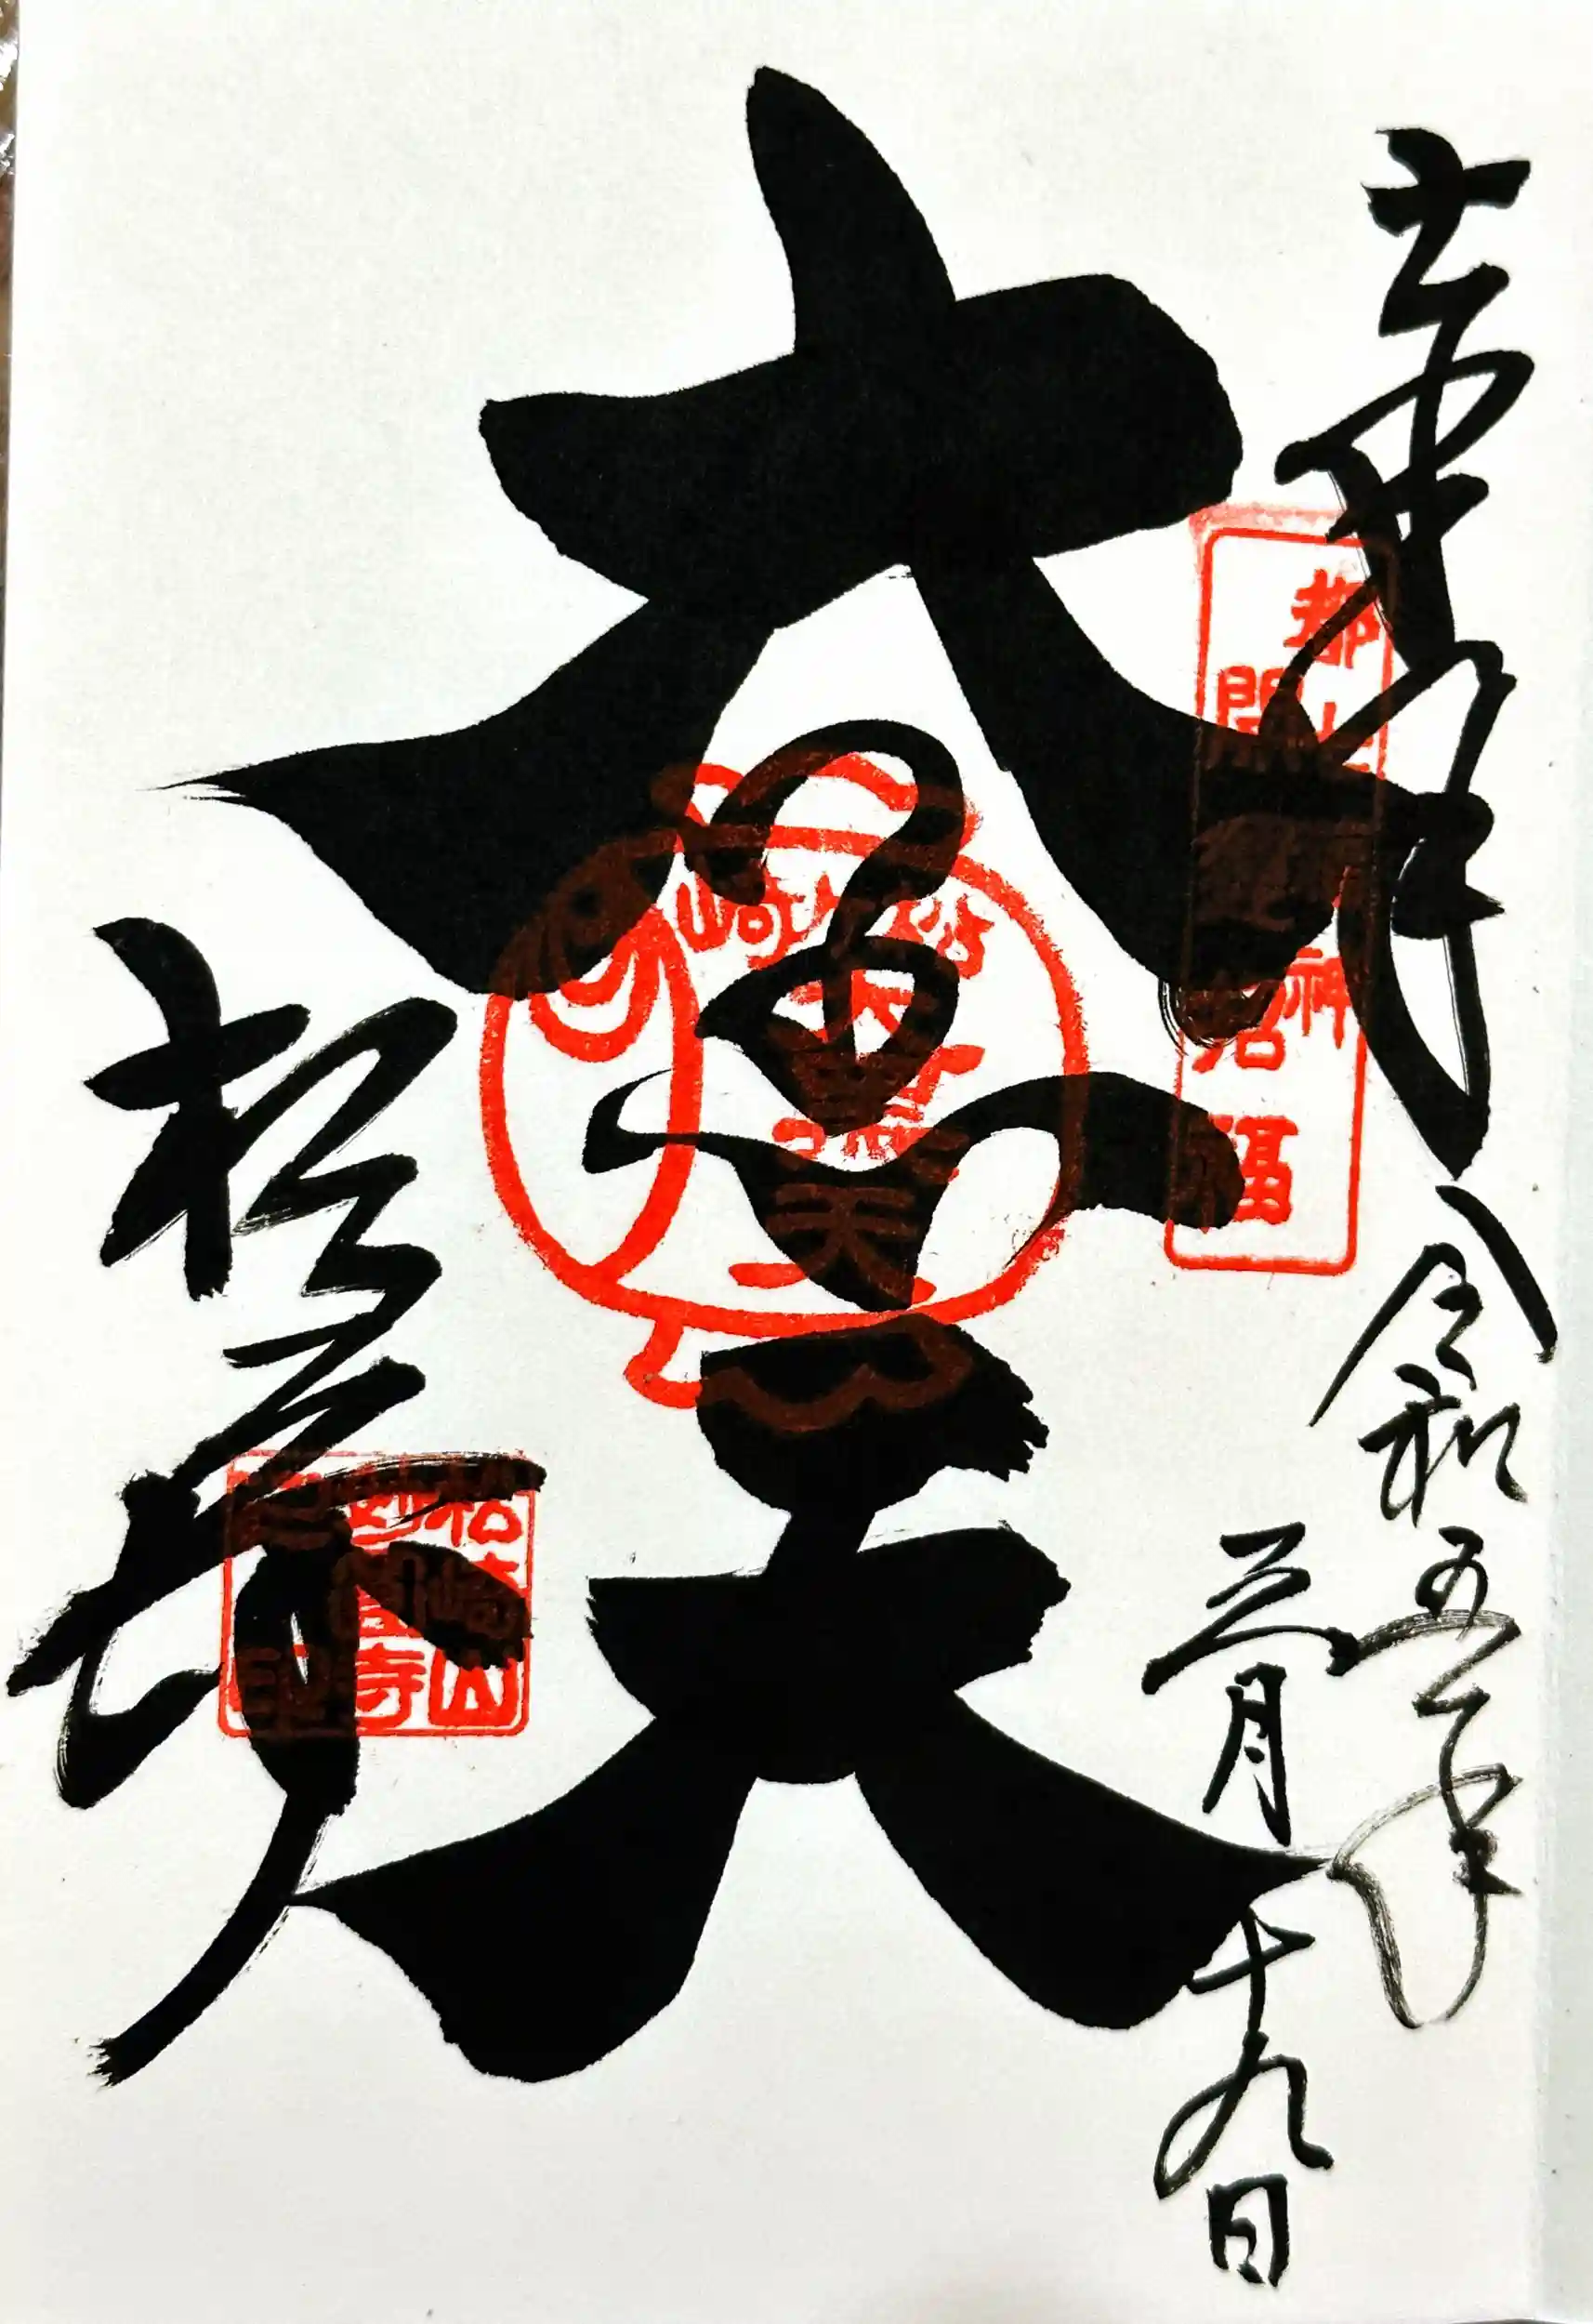 奉拝
令和五年
三月十九日
大黒天
松ヶ崎
開運招福
松崎山
妙圓寺